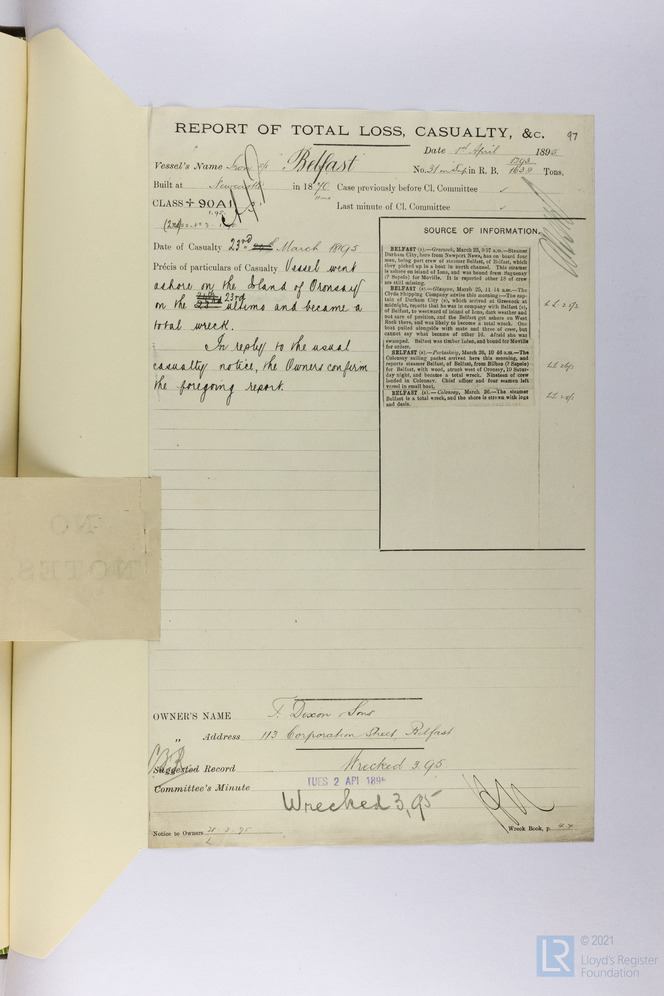 REPORT OF TOTAL LOSS, CASUALTY, &c. 97
Date 1st April 1895
Vessel's Name Iron s/s Belfast
No. 31 in Sup in R. B. 1638 Tons.
Built at Newcastle in 1870 Case previously before Cl. Committee ✓
CLASS + 90A1
Last minute of Cl. Committee ✓
SOURCE OF INFORMATION.
Date of Casualty 23rd March 1895
Précis of particulars of Casualty Vessel went
ashore on the Island of Oronsay
on the 23rd ultimo and became a
total wreck.
In reply to the usual
casualty notice, the Owners confirm
the foregoing report.
BELFAST (s).—Greenock, March 25, 9 57 a.m.—Steamer
Durham City, here from Newport News, has on board four
men, being part crew of steamer Belfast, of Belfast, which
they picked up in a boat in north channel. This steamer
is ashore on island of Iona, and was bound from Saguenay
(? Sapelo) for Moville. It is reported other 18 of crew
are still missing.
BELFAST (s).—Glasgow, March 25, 11 14 a.m.—The
Clyde Shipping Company advise this morning:—The cap-
tain of Durham City (s), which arrived at Greenock at
midnight, reports that he was in company with Belfast (s),
of Belfast, to westward of island of Iona, dark weather and
not sure of position, and the Belfast got ashore on West
Rock there, and was likely to become a total wreck. One
boat pulled alongside with mate and three of crew, but
cannot say what became of other 16. Afraid she was
swamped. Belfast was timber laden, and bound for Moville
for orders.
BELFAST (s).—Portaskaig, March 26, 10 46 a.m.—The
Colonsay sailing packet arrived here this morning, and
reports steamer Belfast, of Belfast, from Bilboa (? Sapelo)
for Belfast, with wood, struck west of Oronsay, 10 Satur-
day night, and became a total wreck. Nineteen of crew
landed in Colonsay. Chief officer and four seamen left
vessel in small boat.
BELFAST (s).—Colonsay, March 26.—The steamer
Belfast is a total wreck, and the shore is strewn with logs
and deals.
NO
NOTES
OWNER'S NAME F. Dixon & Sons
„ Address 113 Corporation Street, Belfast
Suggested Record Wrecked 3.95
Committee's Minute TUES 2 APR 1895
Wrecked 3,95
Notice to Owners
Wreck Book, p.
LR
© 2021
Lloyd's Register
Foundation